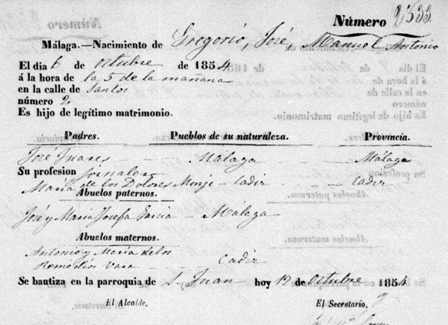 Número 2533.
Málaga.—Nacimiento de Gregorio, José, Manuel Antonio
El dia 6 de octubre de 1854
á la hora de las 5 de la mañana
en la calle de Santos
número 2.
Es hijo de legítimo matrimonio.
Padres. Pueblos de su naturaleza. Provincia.
José Juares Malaga Malaga
Su profesion Jornalero
Maria de los Dolores Monje Cadiz Cadiz
Abuelos paternos.
José y Maria Josefa Garcia Malaga
Abuelos maternos.
Antonio y Maria de los
Remedios Vara Cadiz
Se bautiza en la parroquia de S. Juan hoy 12 de Octubre 1854
El Alcalde. El Secretario.